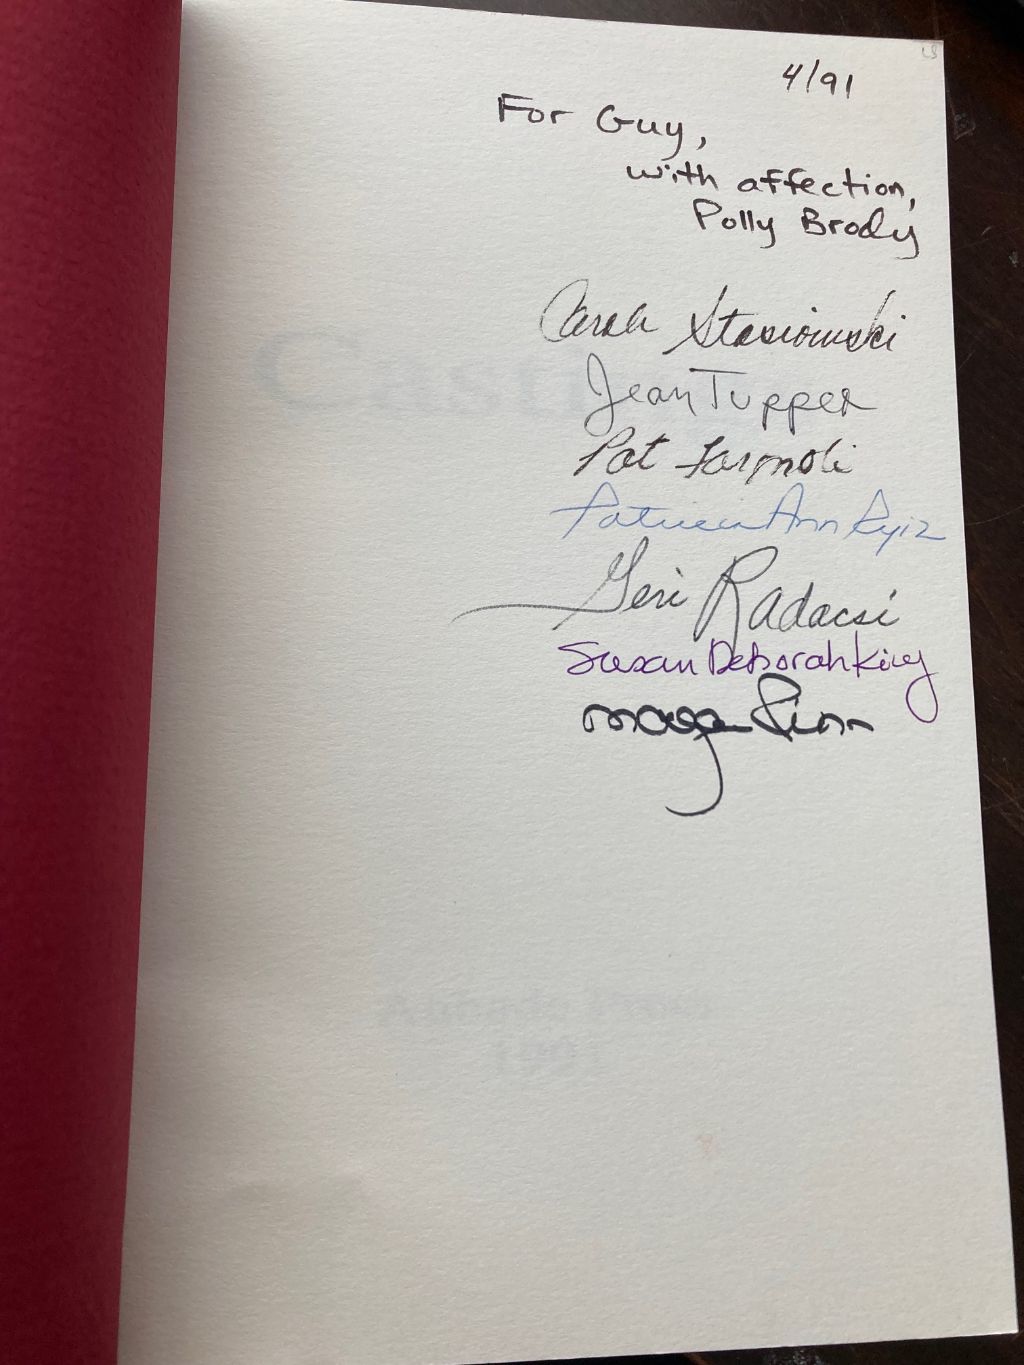 4/91
For Guy,
with affection,
Polly Brody
Carole Stasiowski
Jean Tupper
Pat Fargnoli
Patricia Ann
Geri Radacsi
Susan Deborah King